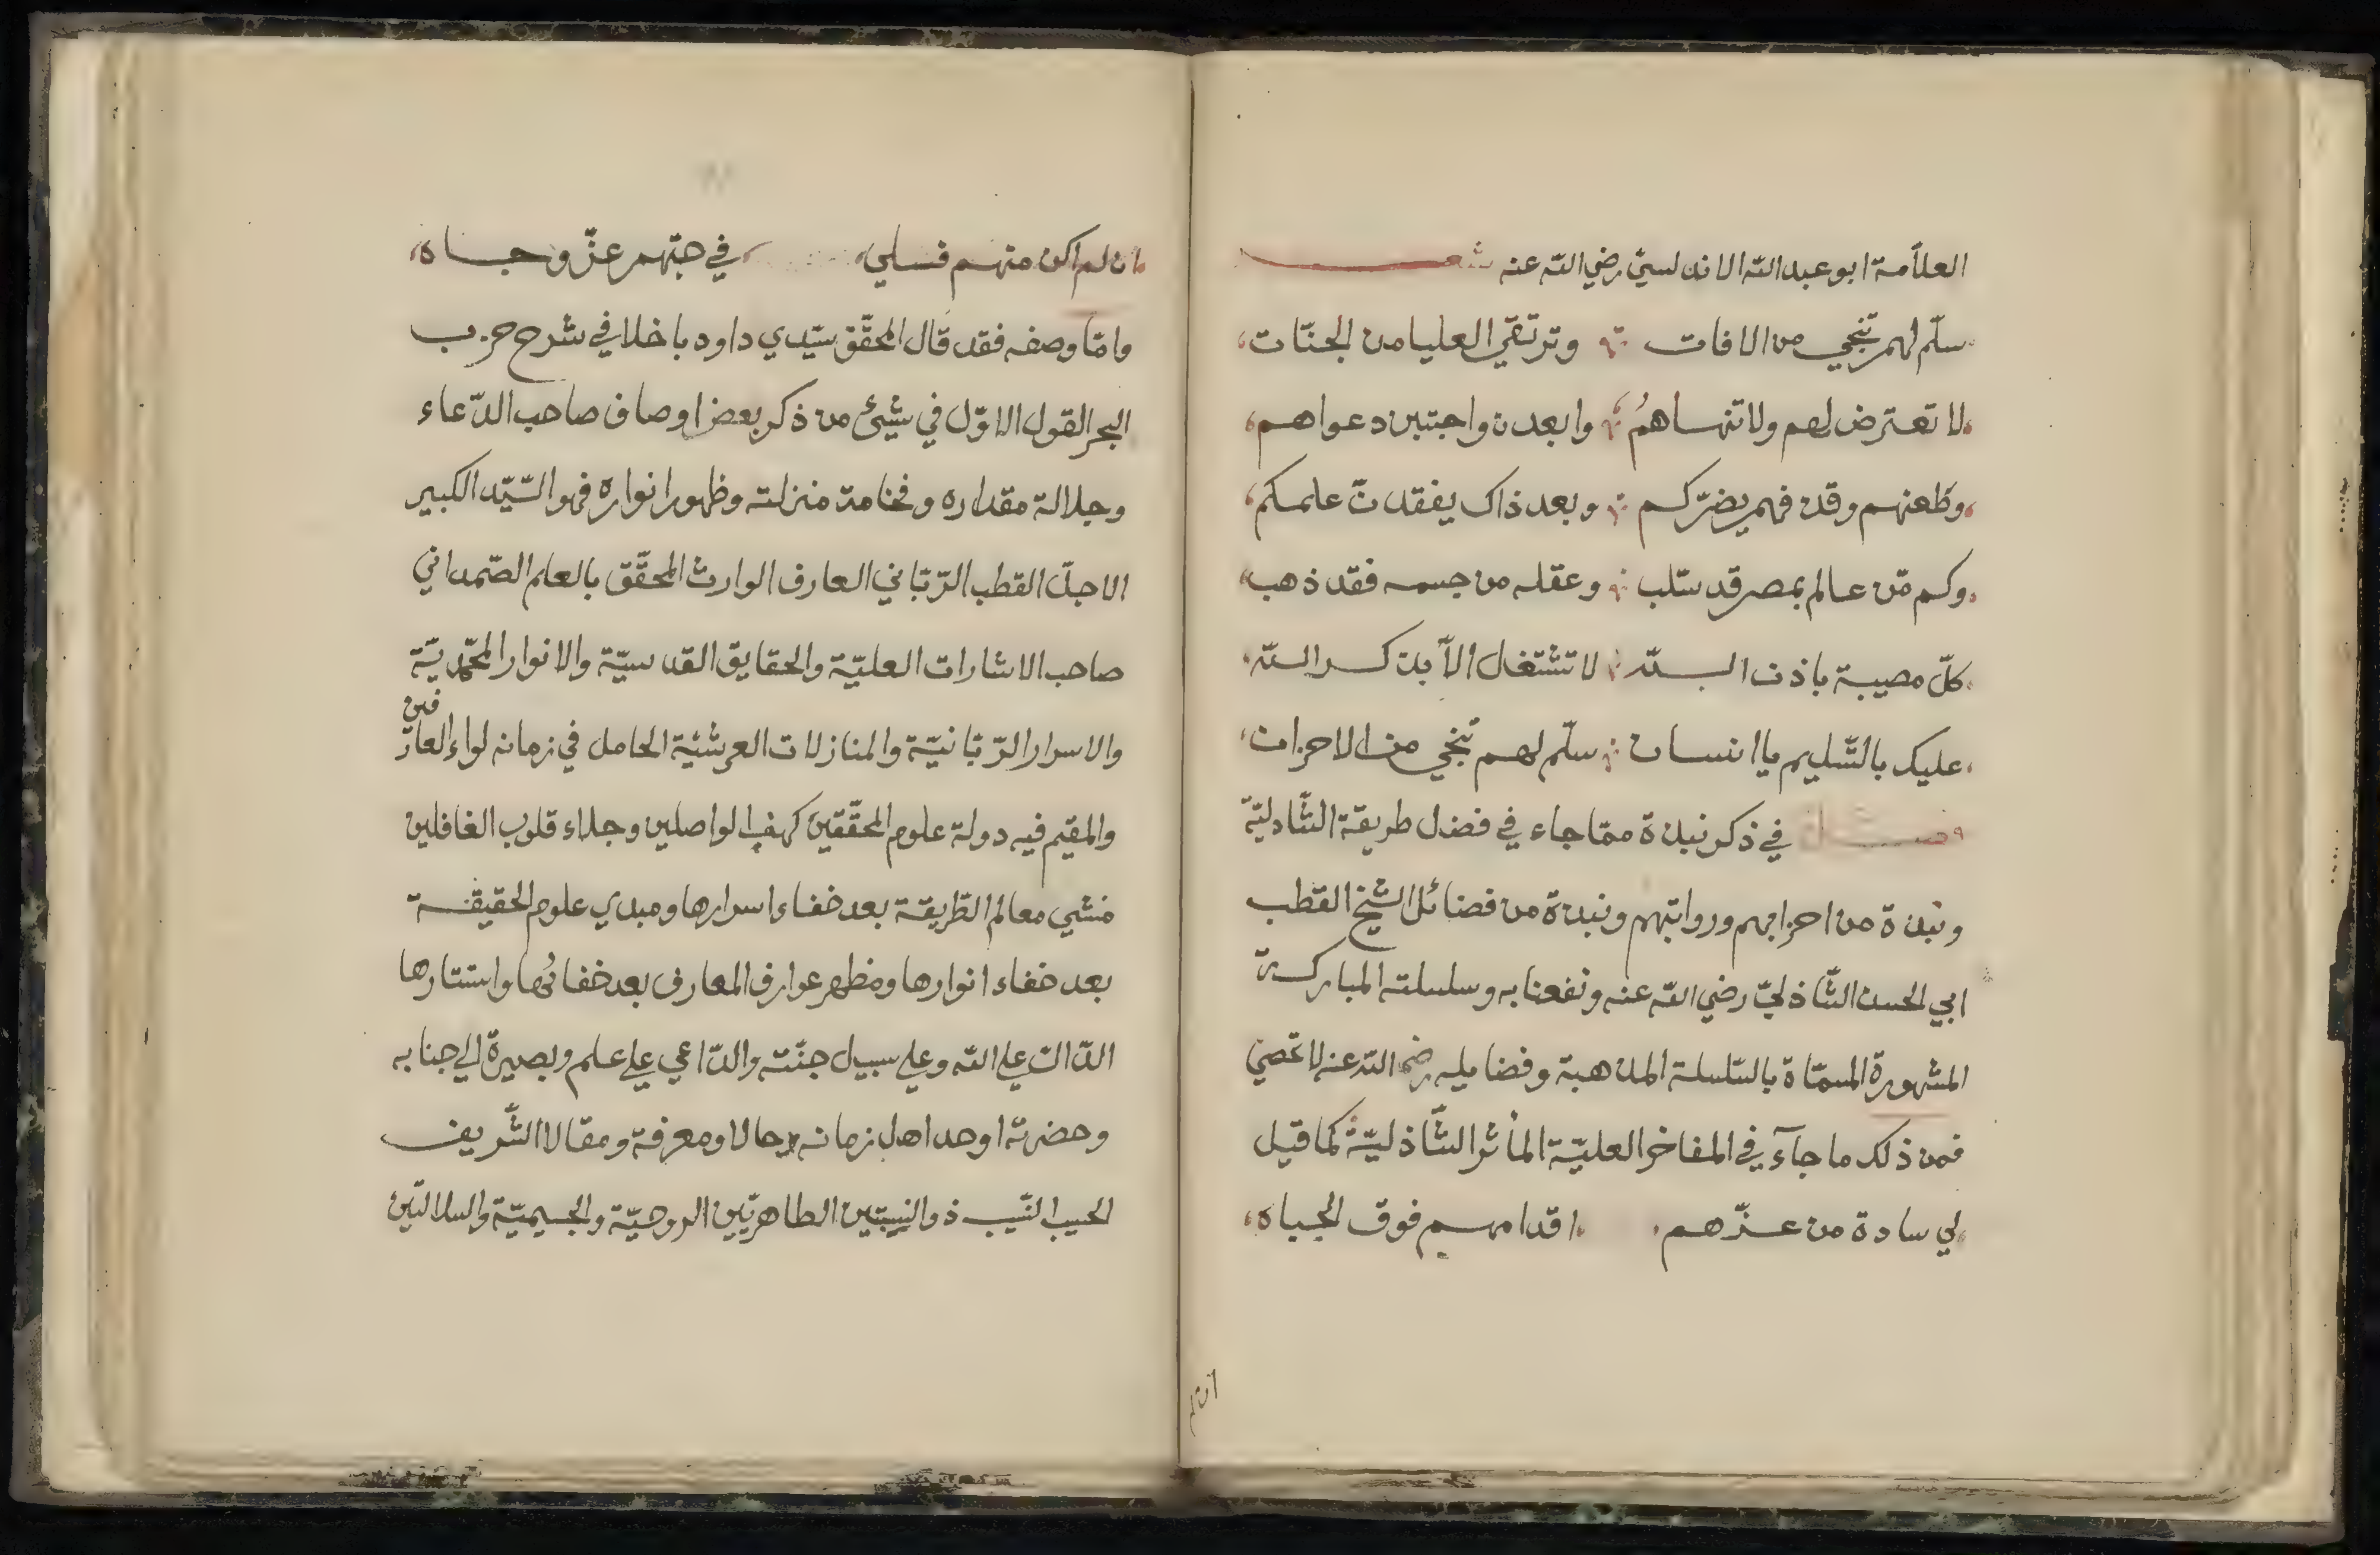 العلّامة ابو عبد الله الاندلسيّ رضي الله عنه شعر
سلّم لهم تنجي من الافات وترتقي العليا من الجنّات
لا تعترض لهم ولا تنساهمُ وابعدن واجتبن دعواهم
وطعنهم وقدن فهم يضرّكم وبعد ذاك يفقدنّ علمكم
وكم مّن عالم بمصر قد سّلب وعقله من جسمه فقد ذهب
كلّ مصيبة باذن الله لا تشتغل الّا بذكر الله
عليك بالتّسليم يا انسان سلّم لهم تنجي من الاحزان
فصل في ذكر نبذة ممّا جاء في فضل طريقة الشّادليّة
ونبذة من احزابهم ورواتبهم ونبذة من فضائل الشيخ القطب
ابي الحسن الشّاذليّ رضي الله عنه ونفعنا به وسلسلته المباركة
المشهورة المسمّاة بالسّلسلة المذهبة وفضايله رضي الله عنه لا تحصي
فمن ذلك ما جآء في المفاخر العليّة المأثر الشّاذليّة كما قيل
لي سادة من عزّهم اقدامهم فوق الجباه
ان لم
ان لم اكن منهم فلي في حبّهم عزّ وجاه
وامّا وصفه فقد قال المحقّق سيّدي داود باخلا في شرح حزب
البحر القول الاوّل في شيئ من ذكر بعض اوصاف صاحب الدّعاء
وجلالة مقداره وفخامة منزلته وظهور انواره فهو السّيّد الكبير
الاجلّ القطب الرّبّاني العارف الوارث المحقّق بالعلم الصّمداني
صاحب الاشارات العليّة والحقايق القدسيّة والانوار المحمّديّة
والاسرار الرّبّانيّة والمنازلات العرشيّة الحامل في زمانه لواء العارفين
والمقيم فيه دولة علوم المحقّقين كهف الواصلين وجلاء قلوب الغافلين
منشي معالم الطّريقة بعد خفاء اسرارها ومبدي علوم الحقيقة
بعد خفاء انوارها ومظهر عوارف المعارف بعد خفائها واستتارها
الدّالّ علي الله وعلي سبيل جنّته والدّاعي علي علم وبصيرة الي جنابه
وحضرته اوحد اهل زمانه حالا ومعرفة ومقالا الشّريف
الحسيب النّسيب ذو النسبتين الطاهرتين الروحيّة والجسميّة والسلالتين